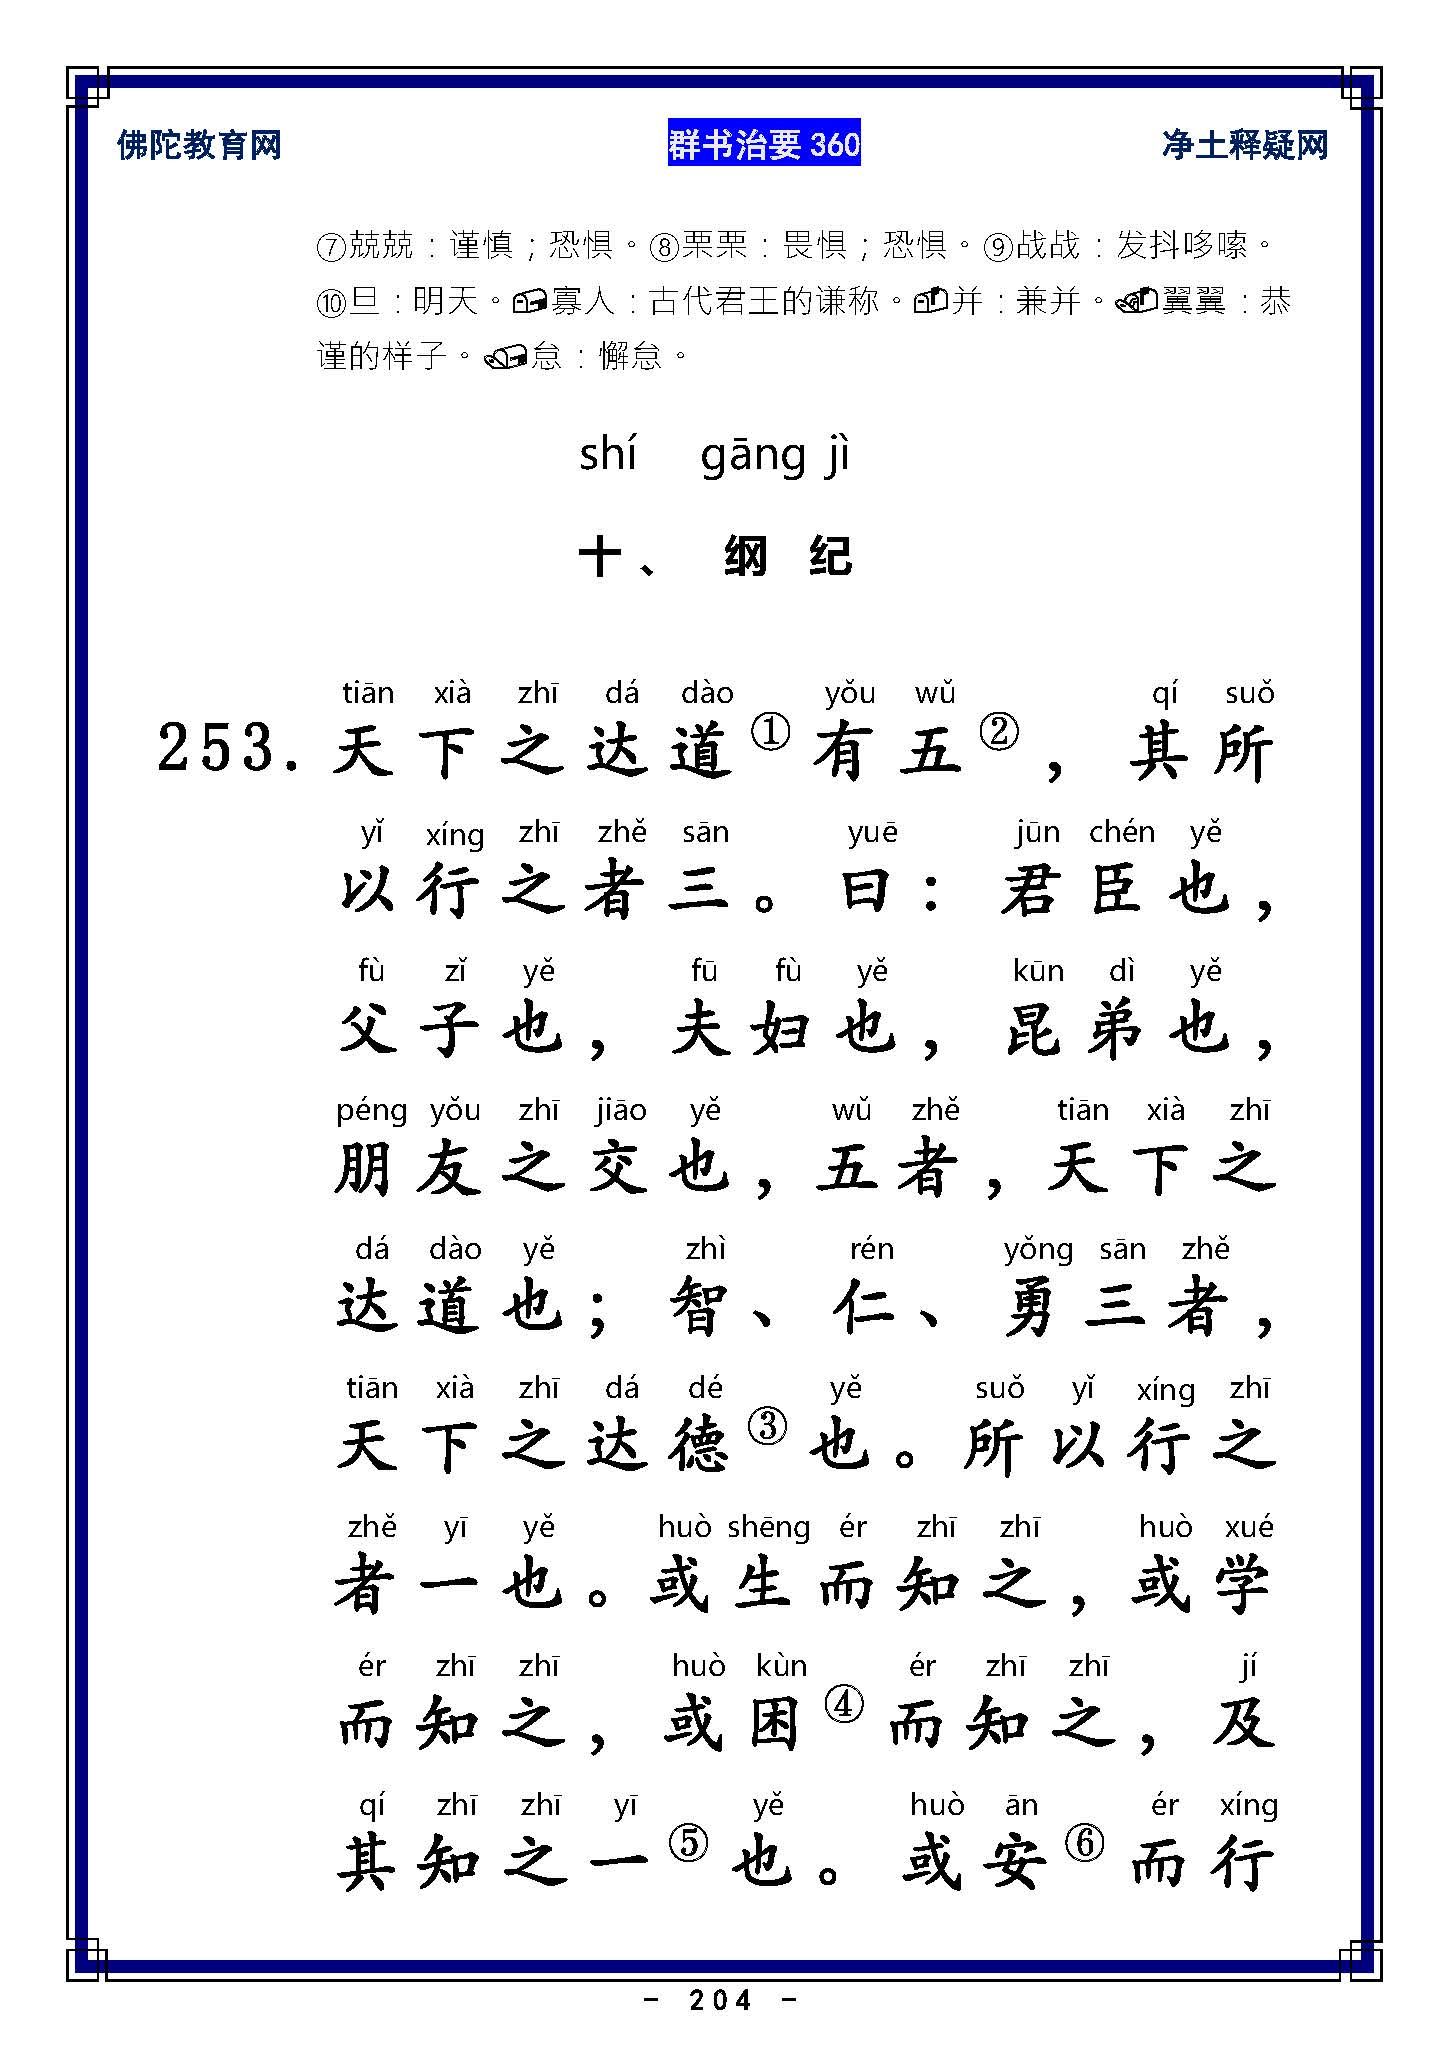 佛陀教育网 群书治要 360 净土释疑网
⑦兢兢：谨慎；恐惧。⑧栗栗：畏惧；恐惧。⑨战战：发抖哆嗦。
⑩旦：明天。寡人：古代君王的谦称。并：兼并。翼翼：恭
谨的样子。怠：懈怠。
shí gāng jì
十、 纲 纪
tiān xià zhī dá dào yǒu wǔ qí suǒ
253. 天下之达道①有五②，其所
yǐ xíng zhī zhě sān yuē jūn chén yě
以行之者三。曰：君臣也，
fù zǐ yě fū fù yě kūn dì yě
父子也，夫妇也，昆弟也，
péng yǒu zhī jiāo yě wǔ zhě tiān xià zhī
朋友之交也，五者，天下之
dá dào yě zhì rén yǒng sān zhě
达道也；智、仁、勇三者，
tiān xià zhī dá dé yě suǒ yǐ xíng zhī
天下之达德③也。所以行之
zhě yī yě huò shēng ér zhī zhī huò xué
者一也。或生而知之，或学
ér zhī zhī huò kùn ér zhī zhī jí
而知之，或困④而知之，及
qí zhī zhī yī yě huò ān ér xíng
其知之一⑤也。或安⑥而行
- 204 -